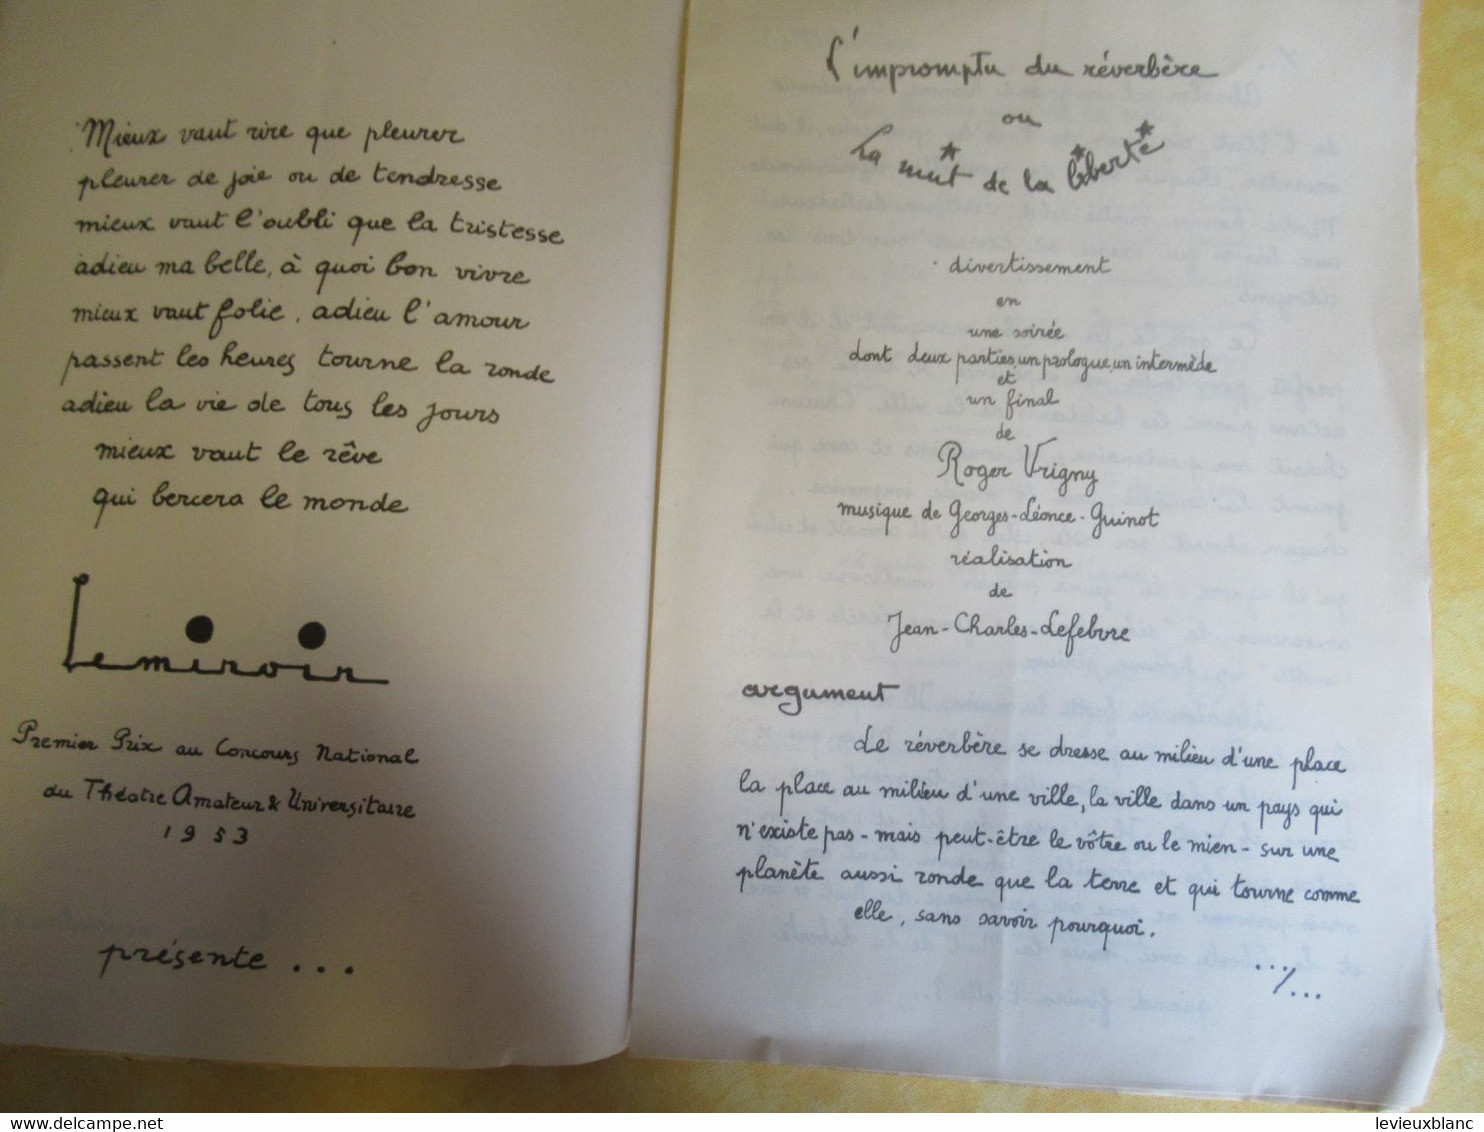 Mieux vaut rire que pleurer
pleurer de joie ou de tendresse
mieux vaut l'oubli que la tristesse
adieu ma belle, à quoi bon vivre
mieux vaut folie, adieu l'amour
passent les heures tourne la ronde
adieu la vie de tous les jours
mieux vaut le rêve
qui bercera le monde
Le miroir
Premier Prix au Concours National
du Théâtre Amateur & Universitaire
1953
présente ...
L'impromptu du réverbère
ou
La nuit de la liberté
divertissement
en
une soirée
dont deux parties, un prologue, un intermède
et
un final
de
Roger Vrigny
musique de Georges-Léonce-Guinot
réalisation
de
Jean-Charles-Lefebvre
argument
Le réverbère se dresse au milieu d'une place
la place au milieu d'une ville, la ville dans un pays qui
n'existe pas - mais peut-être le vôtre ou le mien - sur une
planète aussi ronde que la terre et qui tourne comme
elle, sans savoir pourquoi.
.../...
levieuxblanc